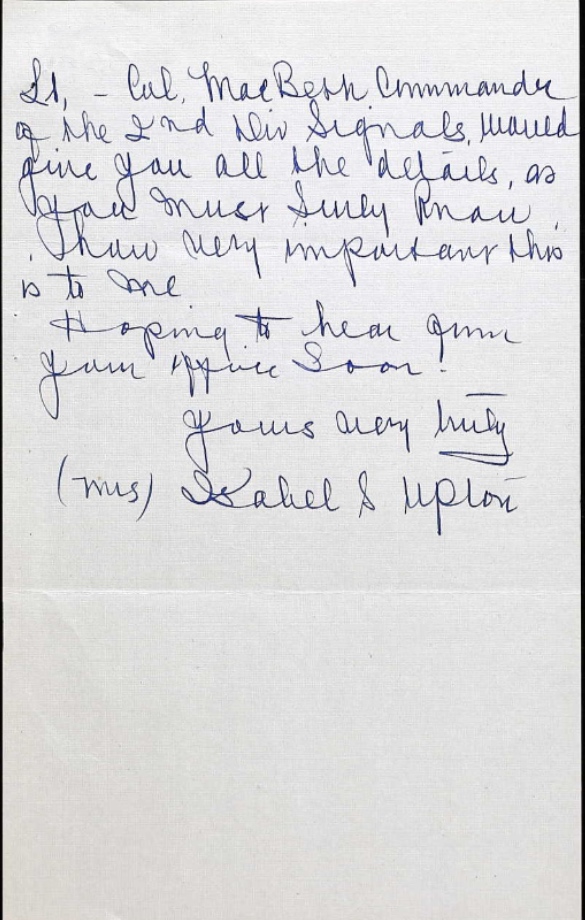 Lt, - Col. MacBeth Commander
of the 2nd Div Signals, would
give you all the details, as
you must surely know,
how very important this
is to me
Hoping to hear from
your office soon!
Yours very truly
(Mrs) Isabel S Upton